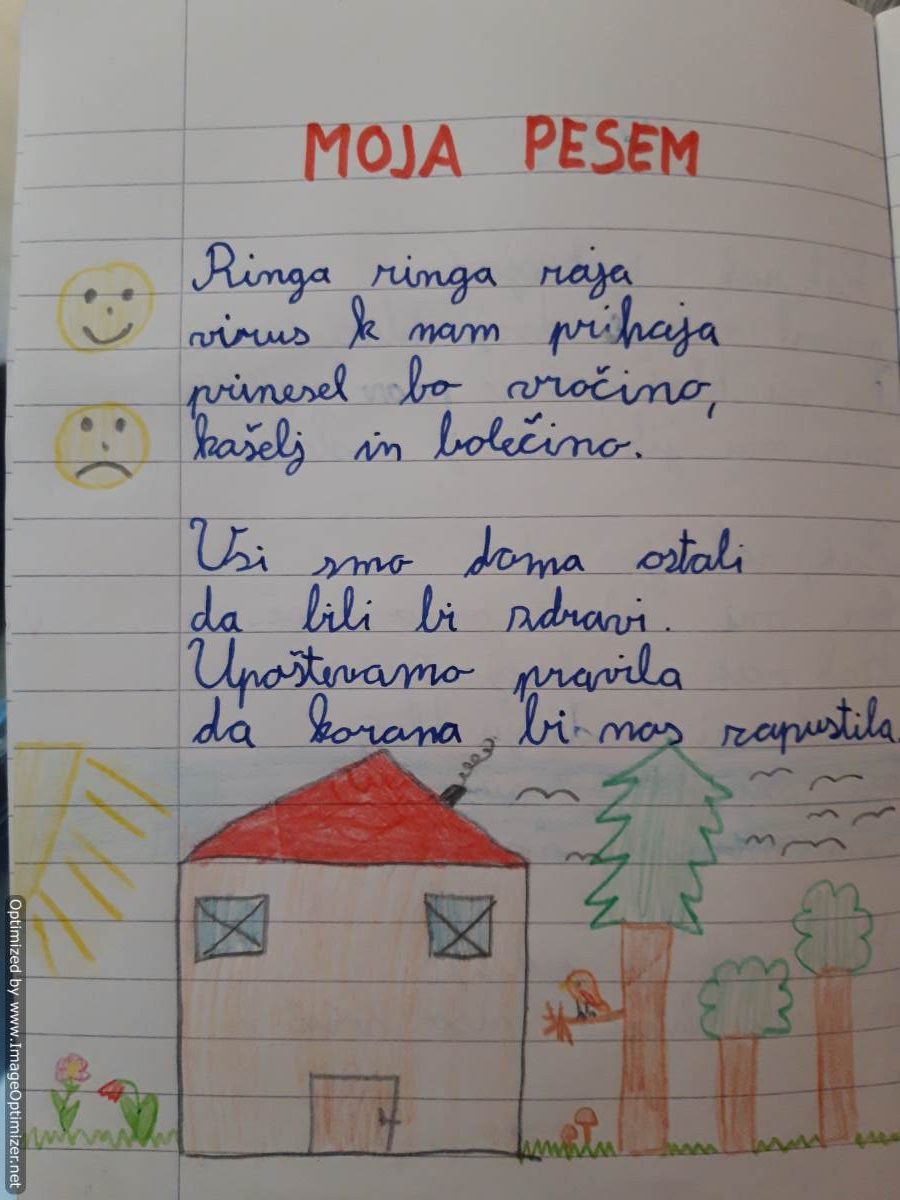 MOJA PESEM
Ringa ringa raja
virus k nam prihaja
prinesel bo vročino,
kašelj in bolečino.
Vsi smo doma ostali
da bili bi zdravi.
Upoštevamo pravila
da korona bi nas zapustila.
Optimized by www.ImageOptimizer.net